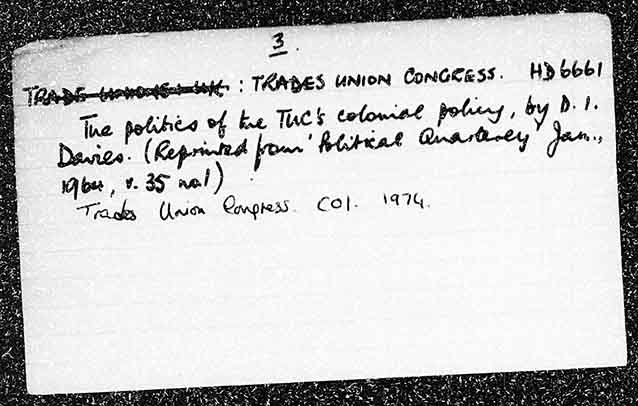 3.
TRADE UNIONS: UK : TRADES UNION CONGRESS. HD6661
The politics of the TUC's colonial policy, by D. I.
Davies. (Reprinted from 'Political Quarterly' Jan.,
1964, v. 35 no1)
Trades Union Congress. COl. 1974.